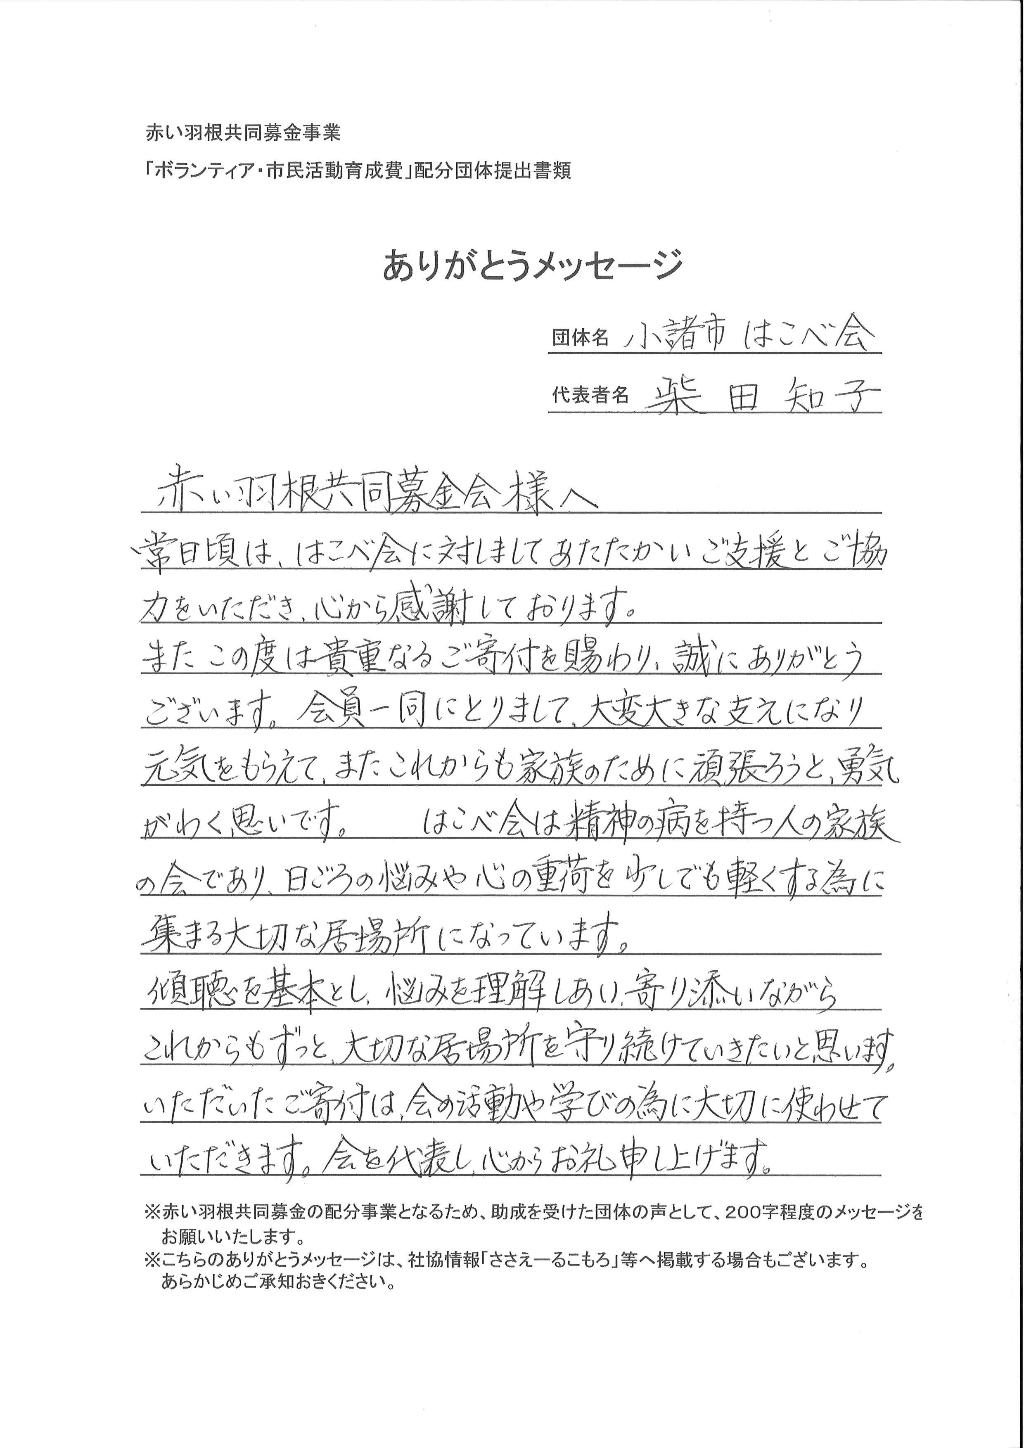 赤い羽根共同募金事業
「ボランティア・市民活動育成費」配分団体提出書類
ありがとうメッセージ
団体名 小諸市 はこべ会
代表者名 柴田知子
赤い羽根共同募金会様へ
常日頃は、はこべ会に対しましてあたたかいご支援とご協
力をいただき、心から感謝しております。
またこの度は貴重なるご寄付を賜わり、誠にありがとう
ございます。会員一同にとりまして、大変大きな支えになり
元気をもらえて、またこれからも家族のために頑張ろうと、勇気
がわく思いです。 はこべ会は精神の病を持つ人の家族
の会であり、日ごろの悩みや心の重荷を少しでも軽くする為に
集まる大切な居場所になっています。
傾聴を基本とし、悩みを理解しあい、寄り添いながら
これからもずっと、大切な居場所を守り続けていきたいと思います。
いただいたご寄付は、会の活動や学びの為に大切に使わせて
いただきます。会を代表し、心からお礼申し上げます。
※赤い羽根共同募金の配分事業となるため、助成を受けた団体の声として、200字程度のメッセージを
お願いいたします。
※こちらのありがとうメッセージは、社協情報「ささえーるこもろ」等へ掲載する場合もございます。
あらかじめご承知おきください。